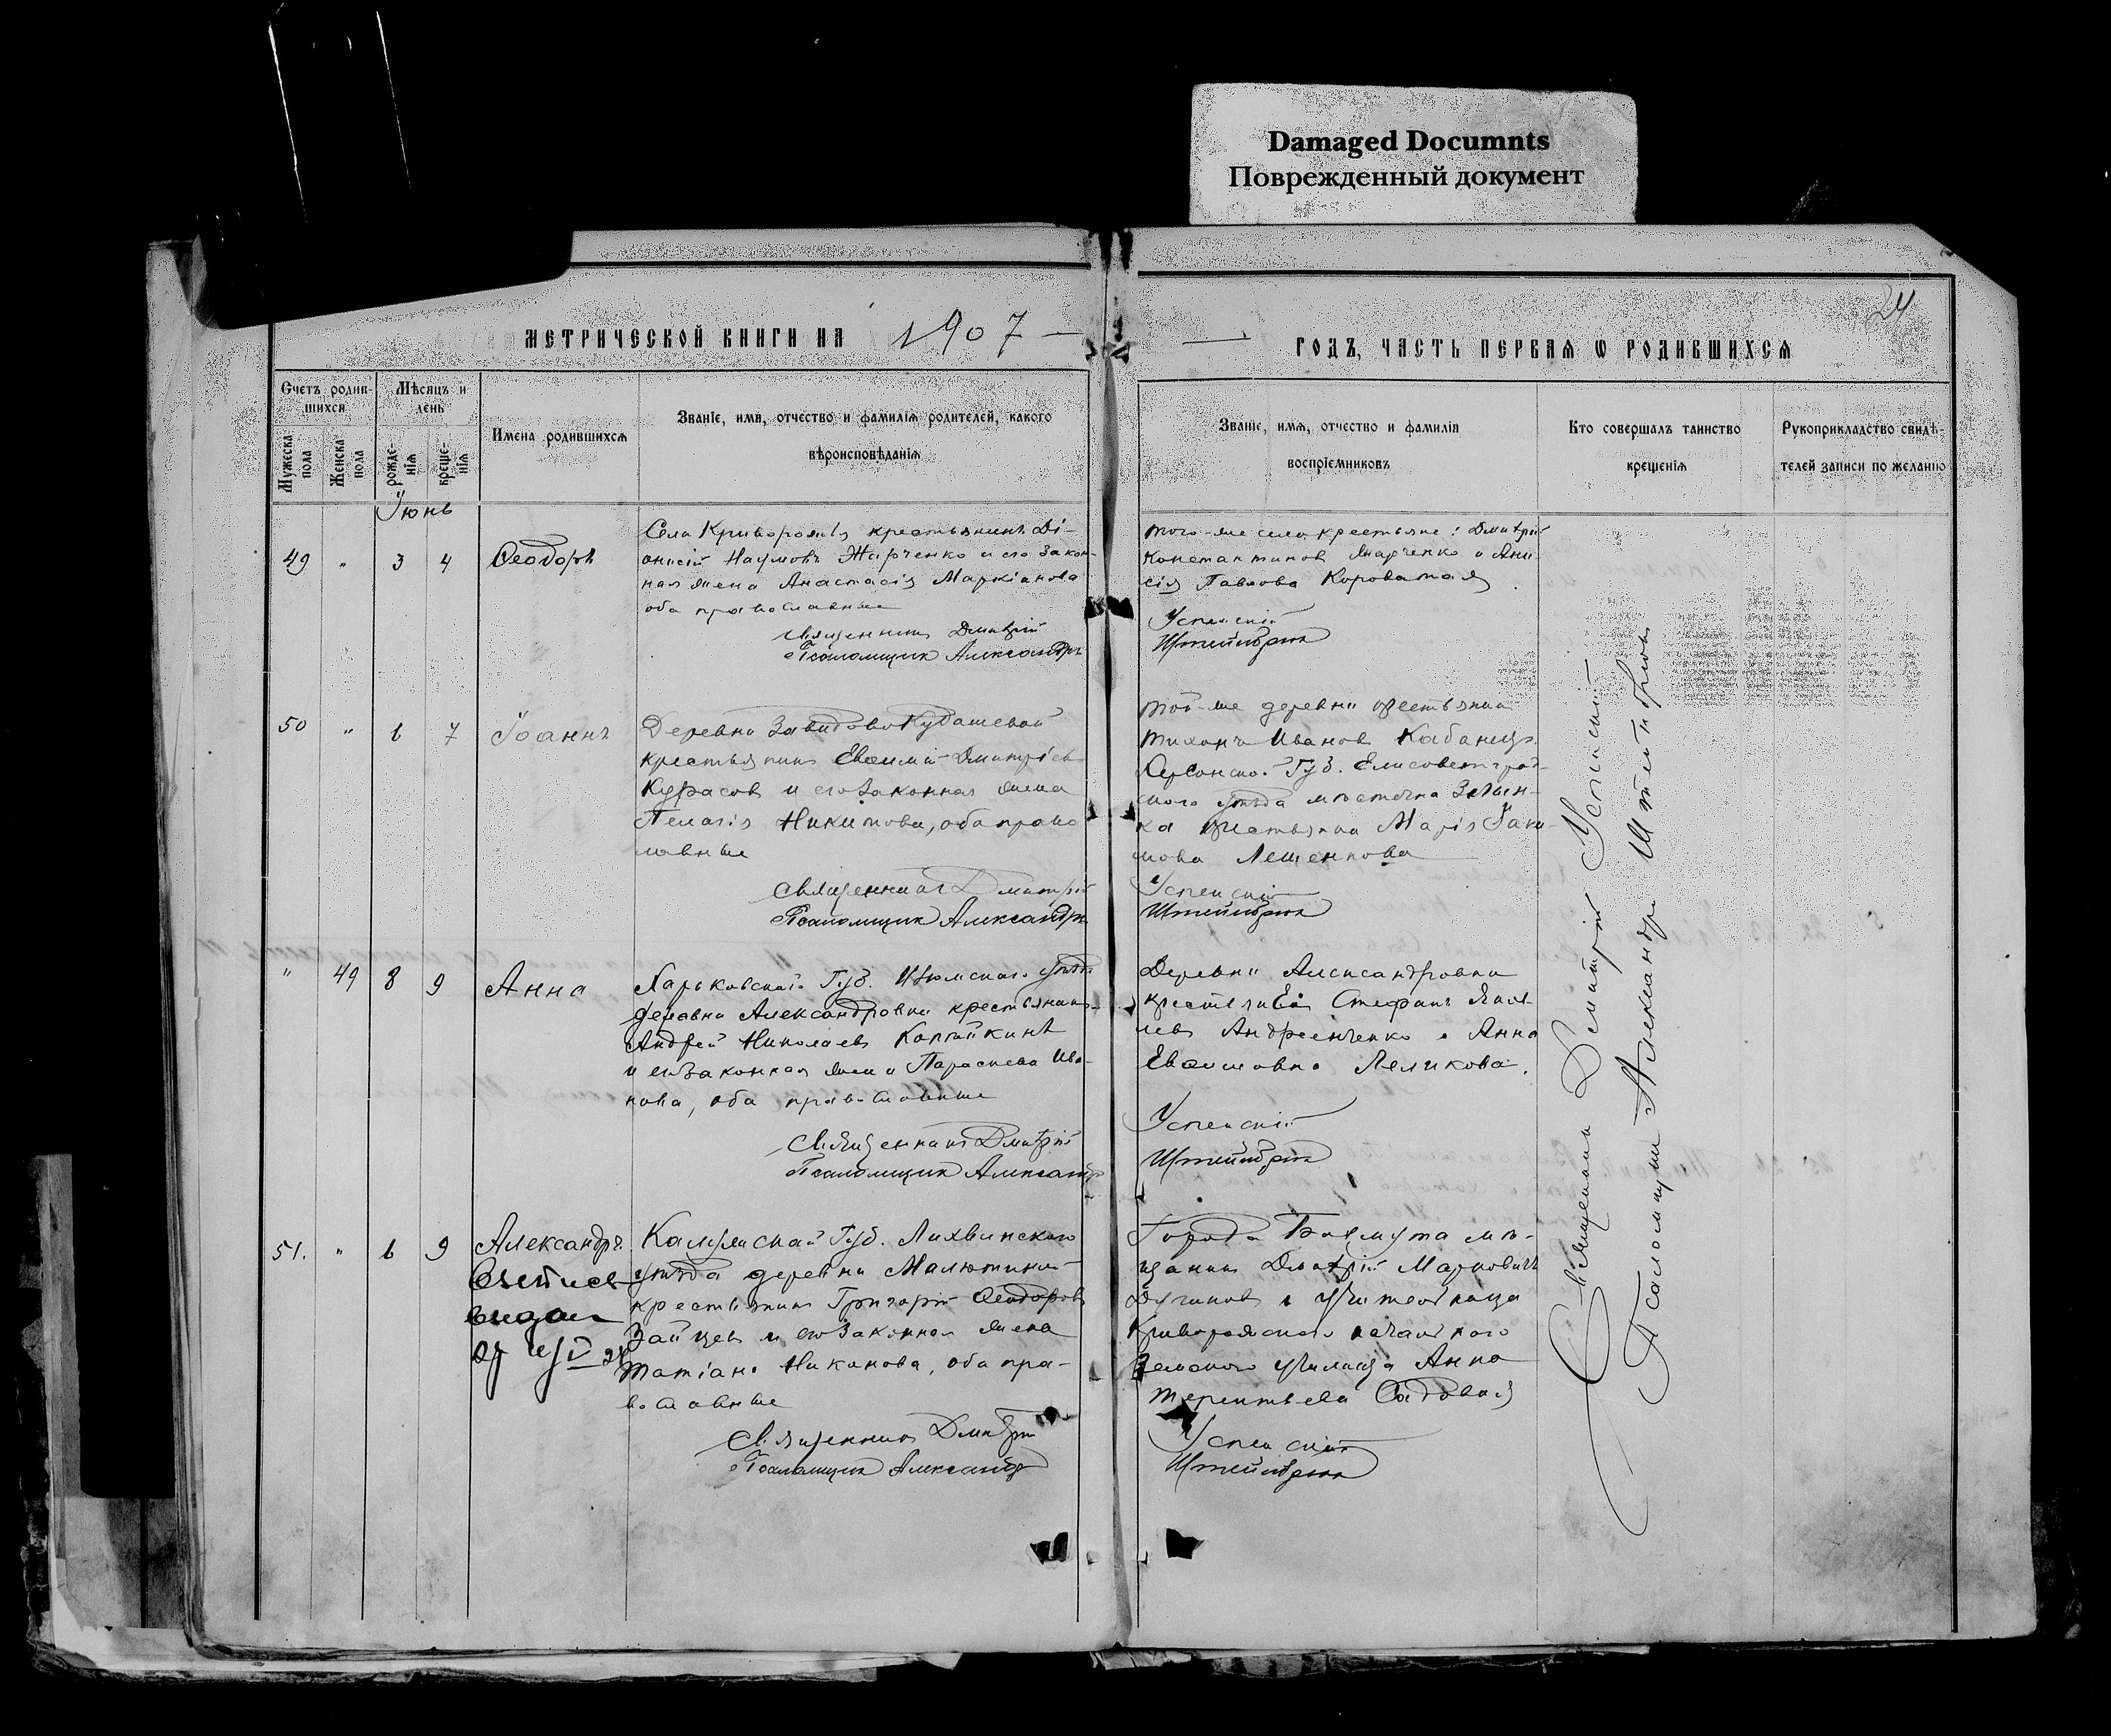 Damaged Documnts
Поврежденный документ
24
МЕТРИЧЕСКОЙ КНИГИ НА 1907 —
— ГОДЪ, ЧАСТЬ ПЕРВАЯ Ѡ РОДИВШИХСЯ
Счетъ родив-
шихся
Мѣсяцъ и
день
Мужеска
пола
Женска
пола
рожде-
нія
креще-
нія
Имена родившихся
Званіе, имя, отчество и фамилія родителей, какого
вѣроисповѣданія
Званіе, имя, отчество и фамилія
воспріемниковъ
Кто совершалъ таинство
крещенія
Рукоприкладство свидѣ-
телей записи по желанію
Іюнь
49 " 3 4 Ѳеодоръ
Села Криворожья крестьянинъ Ді-
онисій Наумовъ Жарченко и его закон-
ная жена Анастасія Маркіанова
оба православные
Священникъ Дмитрій
Псаломщик Александръ
того-же села крестьяне: Дмитрій
Константинов Марченко и Ани-
сія Павлова Короватая
Успенскій
Штейнбрюк
50 " 6 7 Іоаннъ
Деревни Завидово Кудашевой
крестьянинъ Евѳимій Дмитріевъ
Курасов и его законная жена
Пелагія Никитова, оба право
славные
Священникъ Дмитрій
Псаломщик Александръ
той-же деревни крестьянин
Тихонъ Иванов Кабанец
Херсонской Губ. Елисоветград-
скаго уѣзда мѣстечка
крестьянка Марія Іаки-
мова Лещенкова
Успенскій
Штейнбрюк
" 49 8 9 Анна
Харьковской Губ. Изюмскаго уѣзда
деревни Александровки крестьянинъ
Андрей Николаевъ
и его законная жена Параскева Ива-
нова, оба православные
Священникъ Дмитрій
Псаломщик Александръ
Деревни Александровки
крестьяне Стефанъ Яков-
левъ Андреенченко и Анна
Евѳимова Лепикова.
Успенскій
Штейнбрюк
51. " 6 9 Александръ
выдан
Калужской Губ. Лихвинскаго
уѣзда деревни Малютиной
крестьянинъ Григорій Ѳеодоровъ
Зайцев и его законная жена
Татіана Никонова, оба пра-
вославные
Священникъ Дмитрій
Псаломщик Александръ
Города Бахмута мѣ-
щанинъ Дмитрій Марковичъ
и учительница
Криворожскаго начальнаго
Земского училища Анна
Терентьева Садовая
Успенскій
Штейнбрюк
Священникъ Дмитрій Успенскій
Псаломщик Александръ Штейнбрюкъ